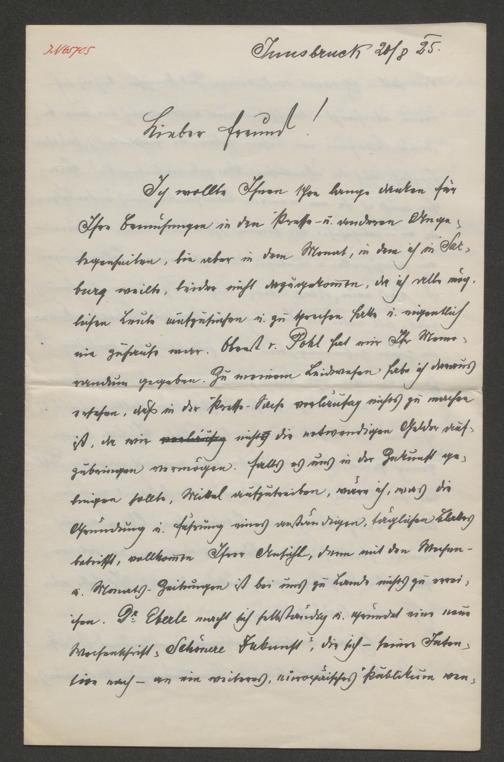 Innsbruck 20/8 25.
Lieber Freund!
Ich wollte Ihnen schon lange danken für
Ihre Bemühungen in den Presse- u. anderen Ange-
legenheiten, bin aber in dem Monat, in dem ich in Salz-
burg weilte, leider nicht dazugekommen, da ich alle mög-
lichen Leute aufzusuchen u. zu sprechen hatte u. eigentlich
nie zuhause war. Oberst v. Pohl hat mir Ihr Memo-
randum gegeben. Zu meinem Leidwesen habe ich daraus
ersehen, daß in der Presse-Sache vorläufig nichts zu machen
ist, da wir vorläufig nicht die notwendigen Gelder auf-
zubringen vermögen. Falls es uns in der Zukunft ge-
lingen sollte, Mittel aufzutreiben, wäre ich, was die
Gründung u. Führung eines anständigen, täglichen Blattes
betrifft, vollkommen Ihrer Ansicht, denn mit den Wochen-
u. Monats-Zeitungen ist bei uns zu Lande nichts zu errei-
chen. Dr. Eberle macht sich selbständig u. gründet eine neue
Wochenschrift „Schönere Zukunft", die sich – seiner Inten-
tion nach – an ein weiteres, europäisches Publikum wen-